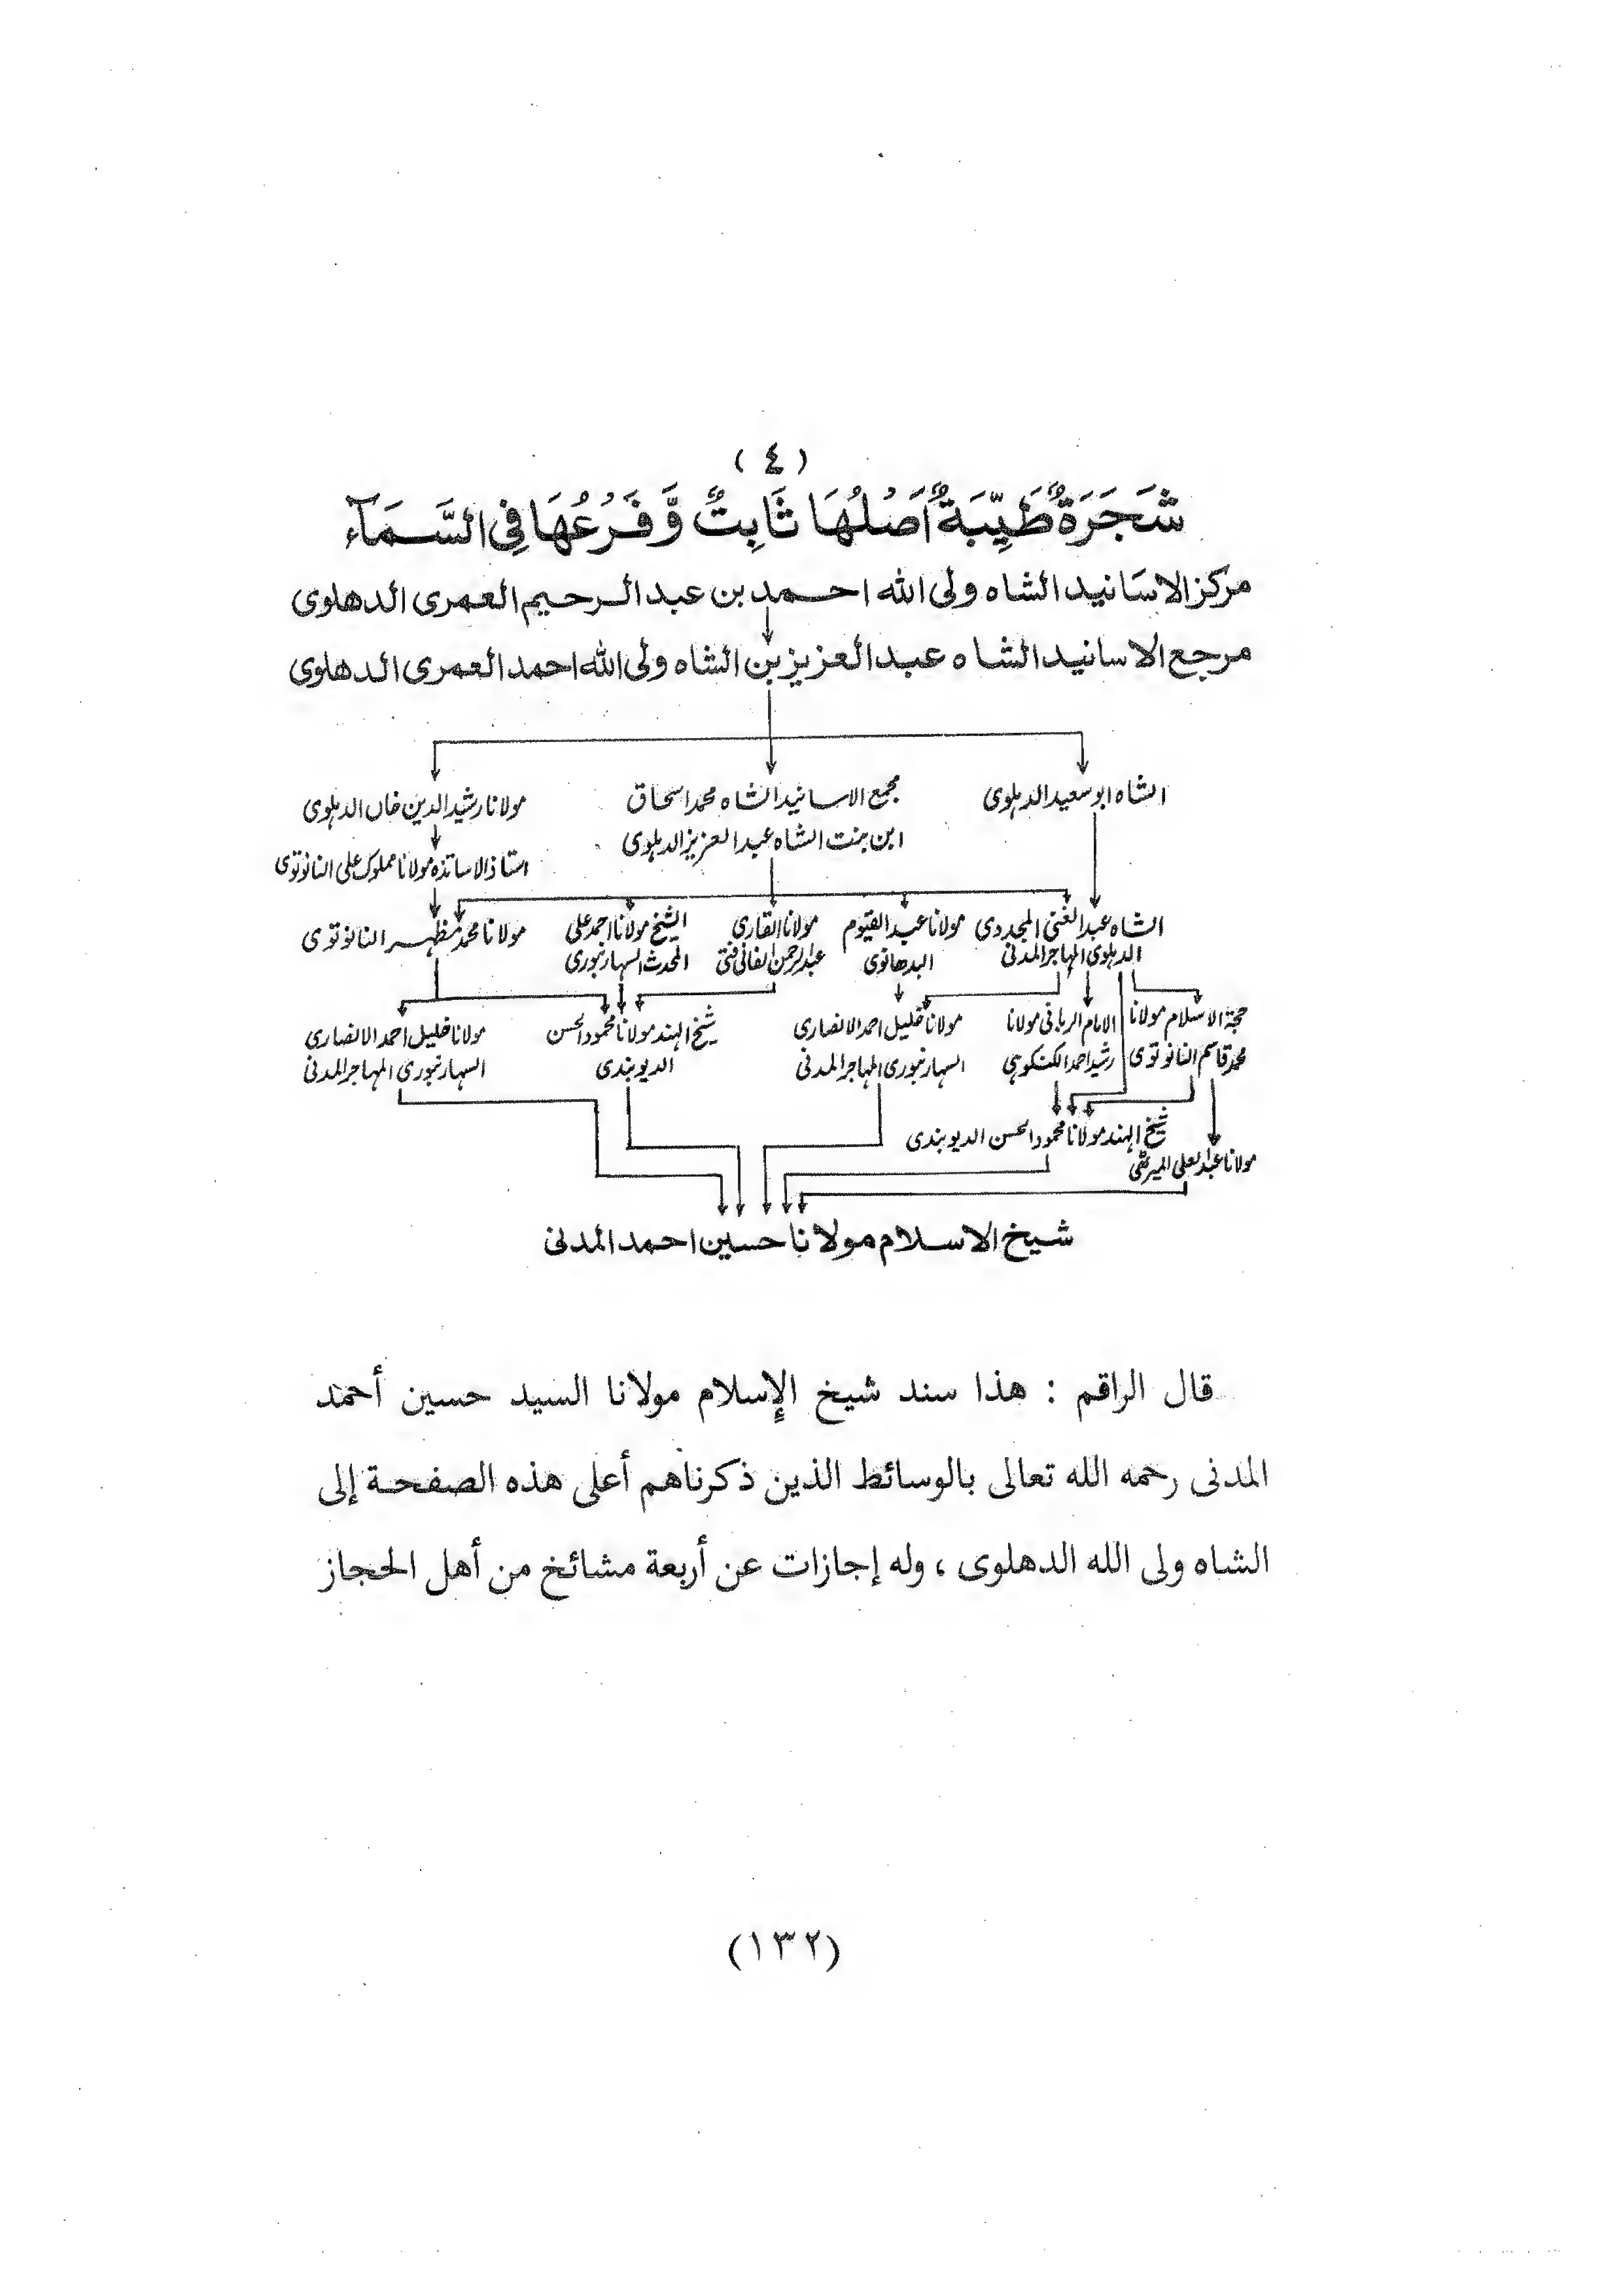 (٤)
شَجَرَةٌ طَيِّبَةٌ اَصْلُهَا ثَابِتٌ وَّفَرْعُهَا فِی السَّمَآء
مرکز الاسَانید الشاہ ولی اللہ احمد بن عبد الرحیم العمری الدهلوی
مرجع الاسانید الشاہ عبد العزیز بن الشاہ ولی اللہ احمد العمری الدهلوی
الشاہ ابو سعید الدہلوی
مجمع الاسانید الشاہ محمد اسحاق
ابن بنت الشاہ عبد العزیز الدہلوی
مولانا رشید الدین خاں الدہلوی
استاذ الاساتذہ مولانا مملوک علی النانوتوی
الشاہ عبد الغنی المجددی
الدہلوی المہاجر المدنی
مولانا عبد القیوم
البدهانوی
مولانا القاری
عبد الرحمن الفانی فتی
الشیخ مولانا احمد علی
المحدث السہارنبوری
مولانا محمد مظہر النانوتوی
حجۃ الاسلام مولانا
محمد قاسم النانوتوی
الامام الربانی مولانا
رشید احمد الکنکوہی
مولانا خلیل احمد الانصاری
السہارنبوری المہاجر المدنی
شیخ الہند مولانا محمود الحسن
الدیوبندی
مولانا خلیل احمد الانصاری
السہارنبوری المہاجر المدنی
شیخ الہند مولانا محمود الحسن الدیوبندی
مولانا عبد العلی المیرٹھی
شیخ الاسلام مولانا حسین احمد المدنی
قال الراقم : هذا سند شيخ الإسلام مولانا السيد حسين أحمد
المدنى رحمه الله تعالى بالوسائط الذين ذكرناهم أعلى هذه الصفحة إلى
الشاه ولى الله الدهلوى ، وله إجازات عن أربعة مشائخ من أهل الحجاز
(١٣٢)